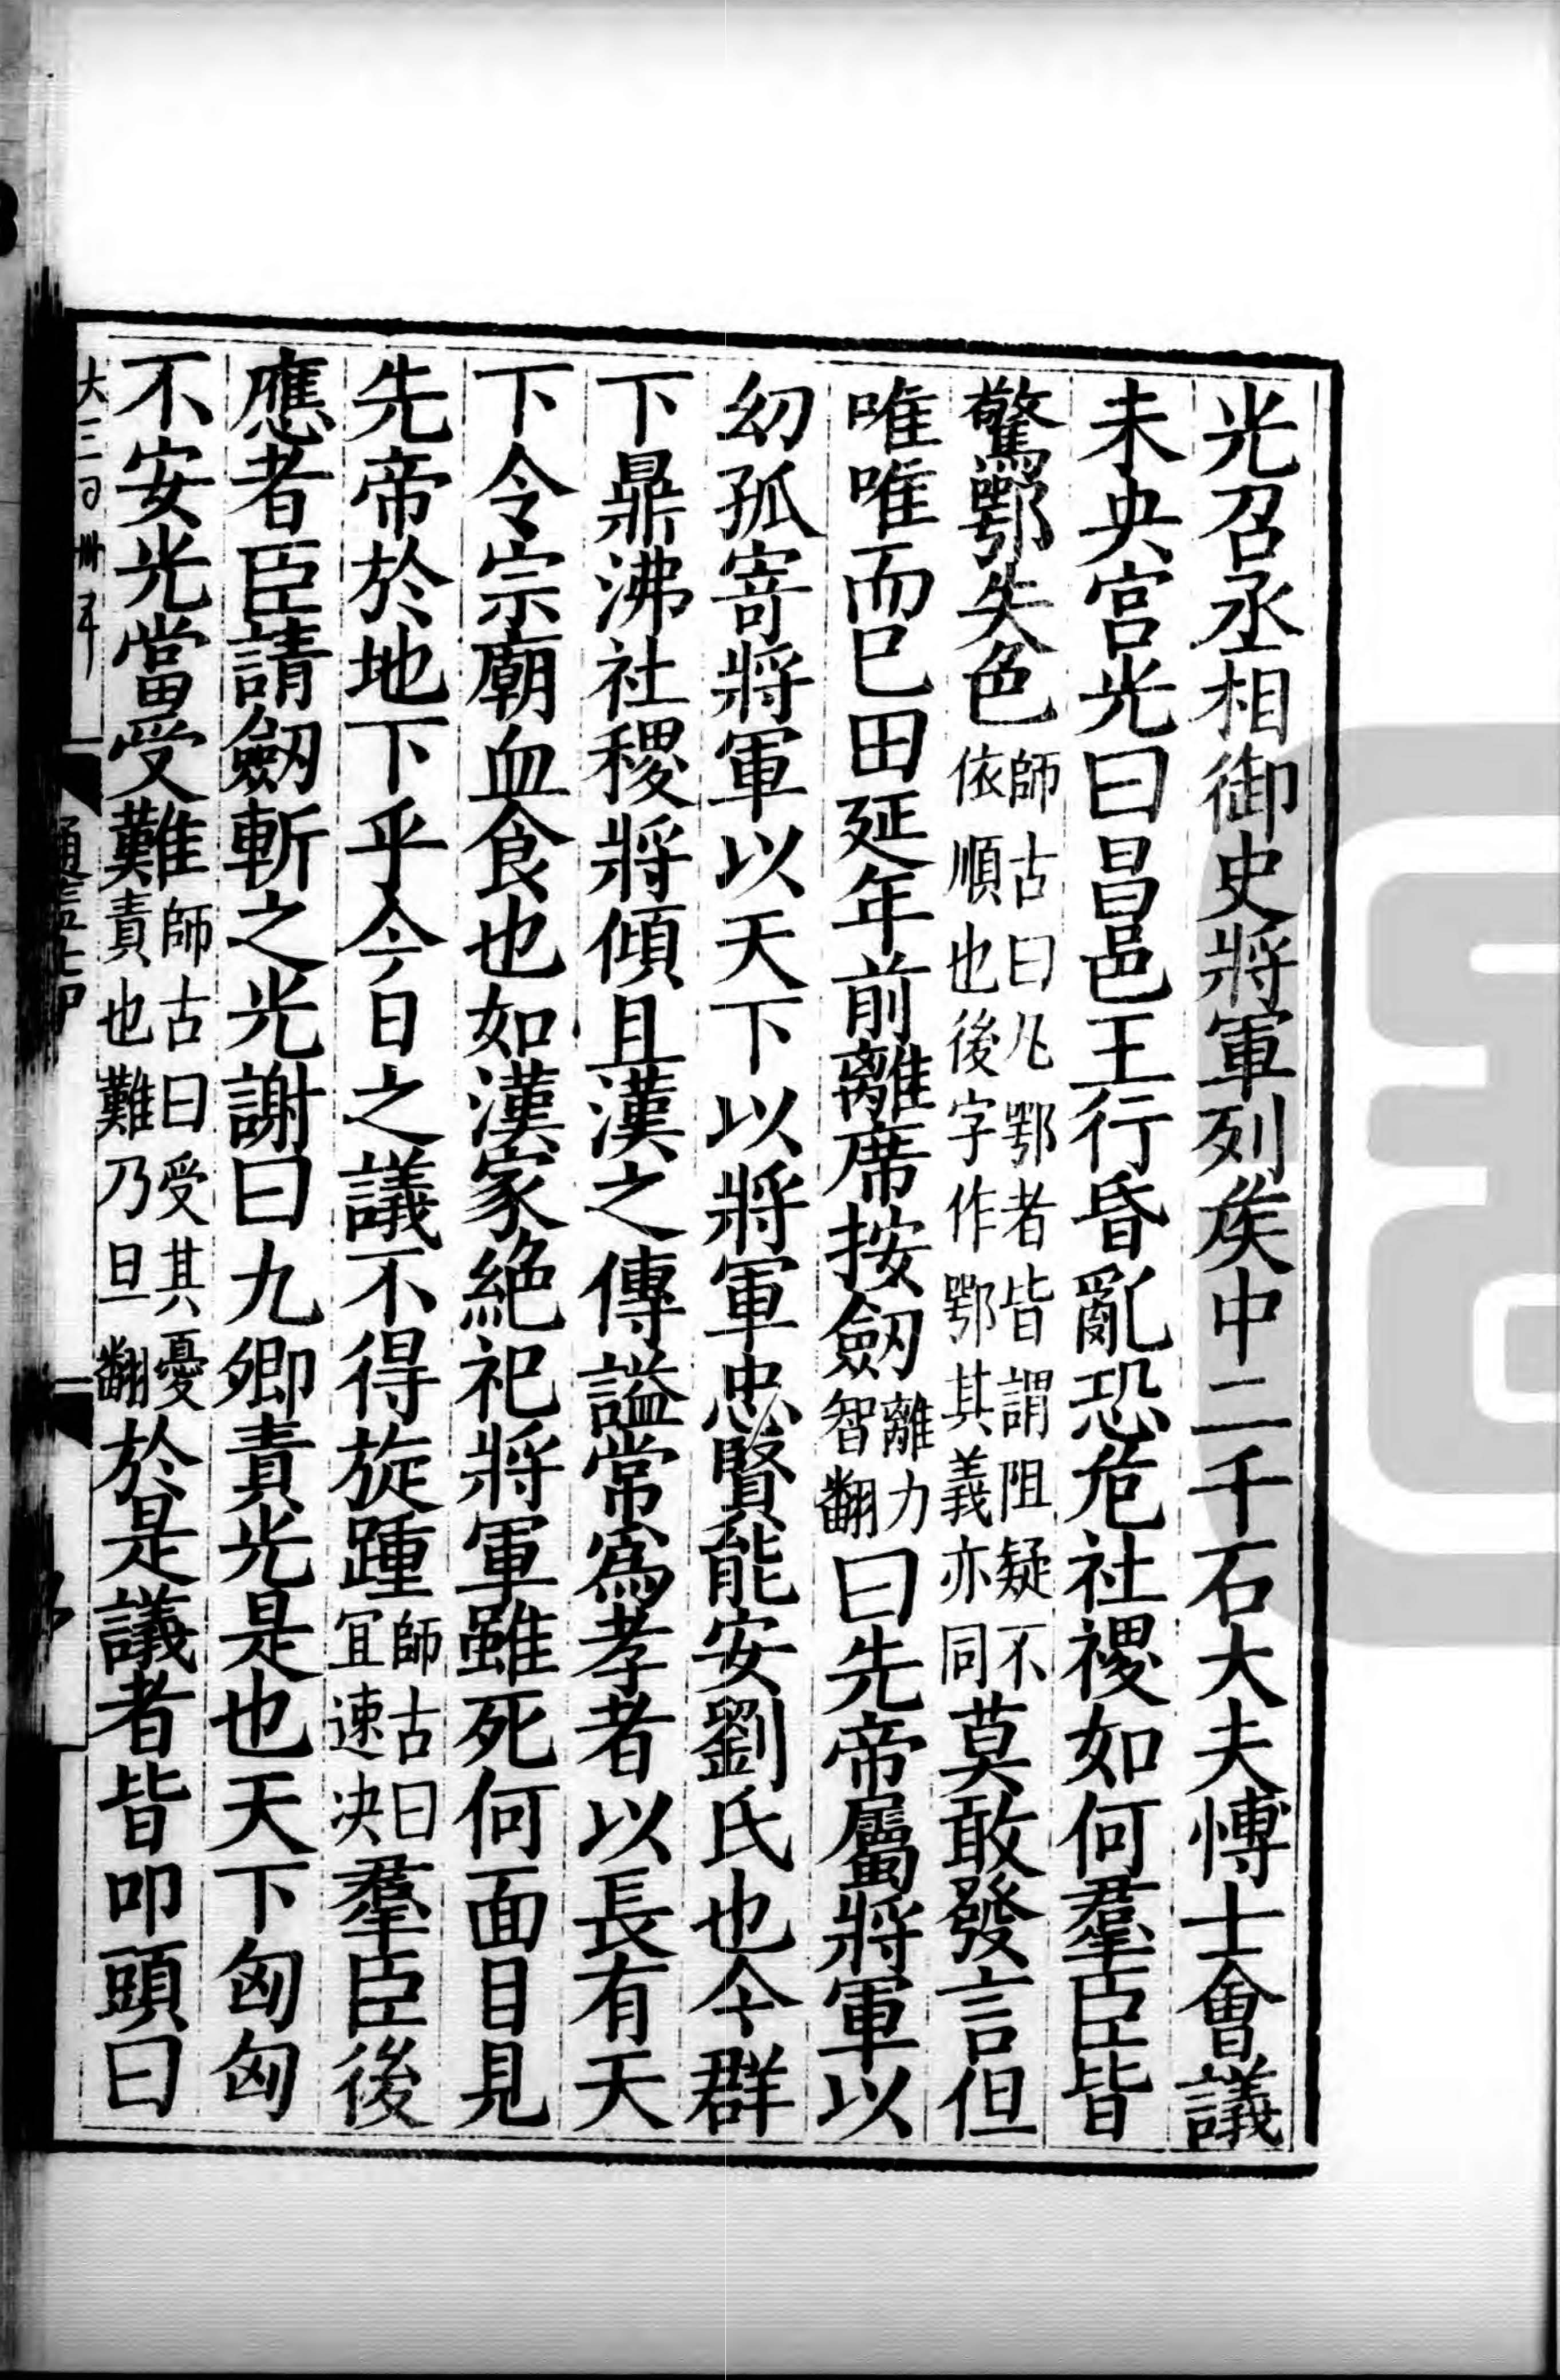 光召丞相御史將軍列矦中二千石大夫博士會議
未央宮光曰昌邑王行昏亂恐危社禝如何羣臣皆
驚鄂失色師古曰凡鄂者皆謂阻疑不依順也後字作鄂其義亦同莫敢發言但
唯唯而巳田延年前離席按劒離力智翻曰先帝屬將軍以
幼孤寄將軍以天下以將軍忠賢能安劉氏也今群
下鼎沸社稷將傾且漢之傳謚常爲孝者以長有天
下令宗廟血食也如漢家絶祀將軍雖死何面目見
先帝於地下乎今日之議不得旋踵師古曰宜速决羣臣後
應者臣請劒斬之光謝曰九卿責光是也天下匈匈
不安光當受難師古曰受其憂責也難乃旦翻於是議者皆叩頭曰